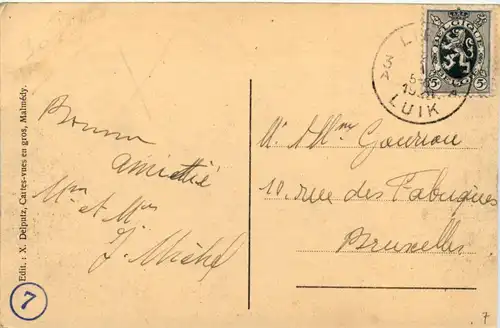 Edit. : X. Delputz, Cartes-vues en gros, Malmédy.
7
Bonne
amitié
Mr et Mme
J. Michel
BELGIQUE
BELGIË
5 5
3
A
A
LUIK
Mr & Mme Gourion
10. rue des Fabriques
Bruxelles
7